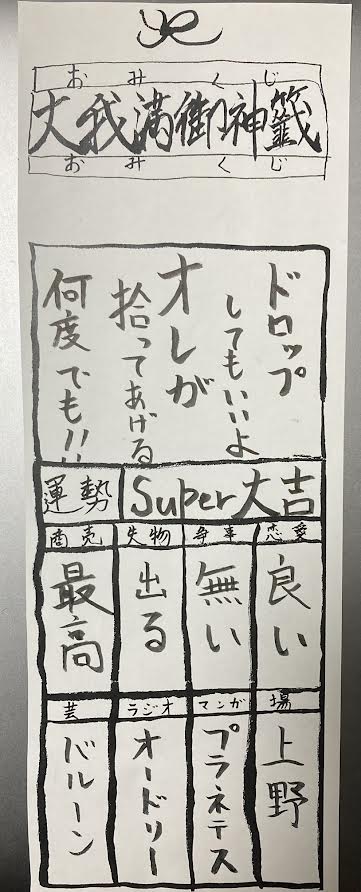 おみくじ
大我満御神籤
おみくじ
ドロップ
してもいいよ
オレが
拾ってあげる
何度でも!!
運勢
Super大吉
恋愛
良い
争事
無い
失物
出る
商売
最高
場
上野
マンガ
プラネテス
ラジオ
オードリー
芸
バルーン